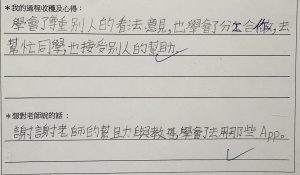 *我的過程收穫及心得:
學會了尊重別人的看法、意見,也學會了分工合作,去
幫忙同學,也接受別人的幫助。
*想對老師說的話:
謝謝老師的幫助與教導,學會了去用那些App。